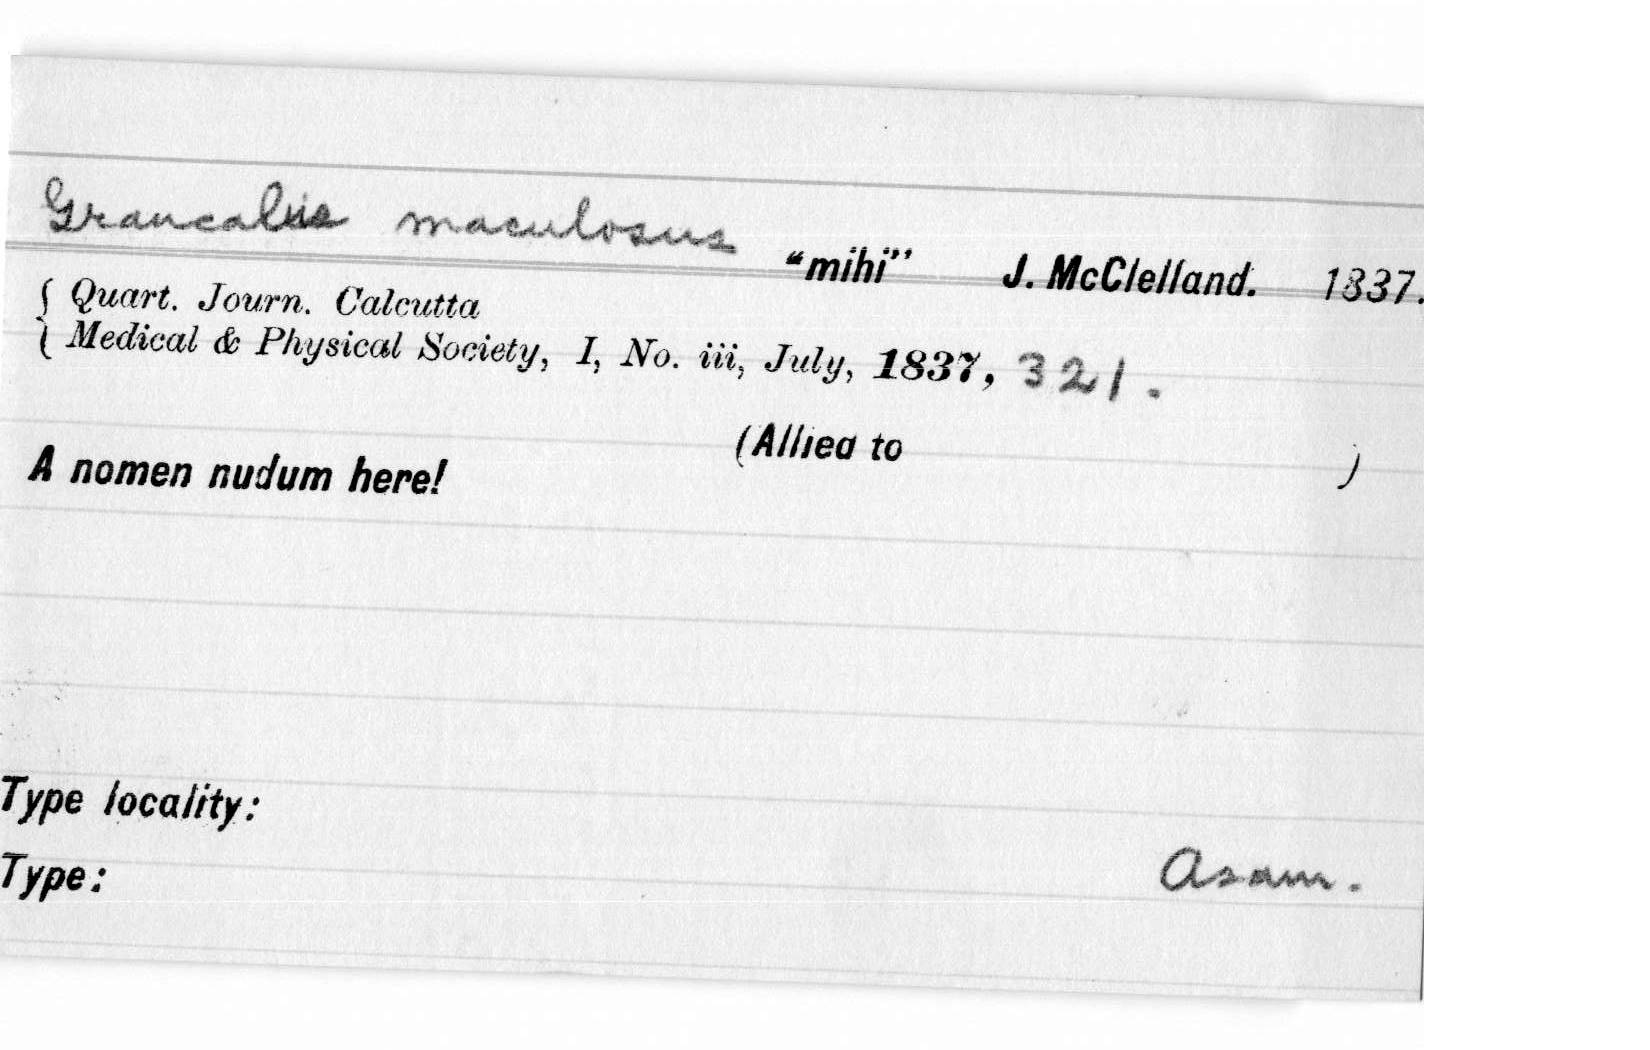 Graucalus maculosus "mihi" J. McClelland. 1837.
{ Quart. Journ. Calcutta
{ Medical & Physical Society, I, No. iii, July, 1837, 321.
(Allied to )
A nomen nudum here!
Type locality:
Type: Asam.